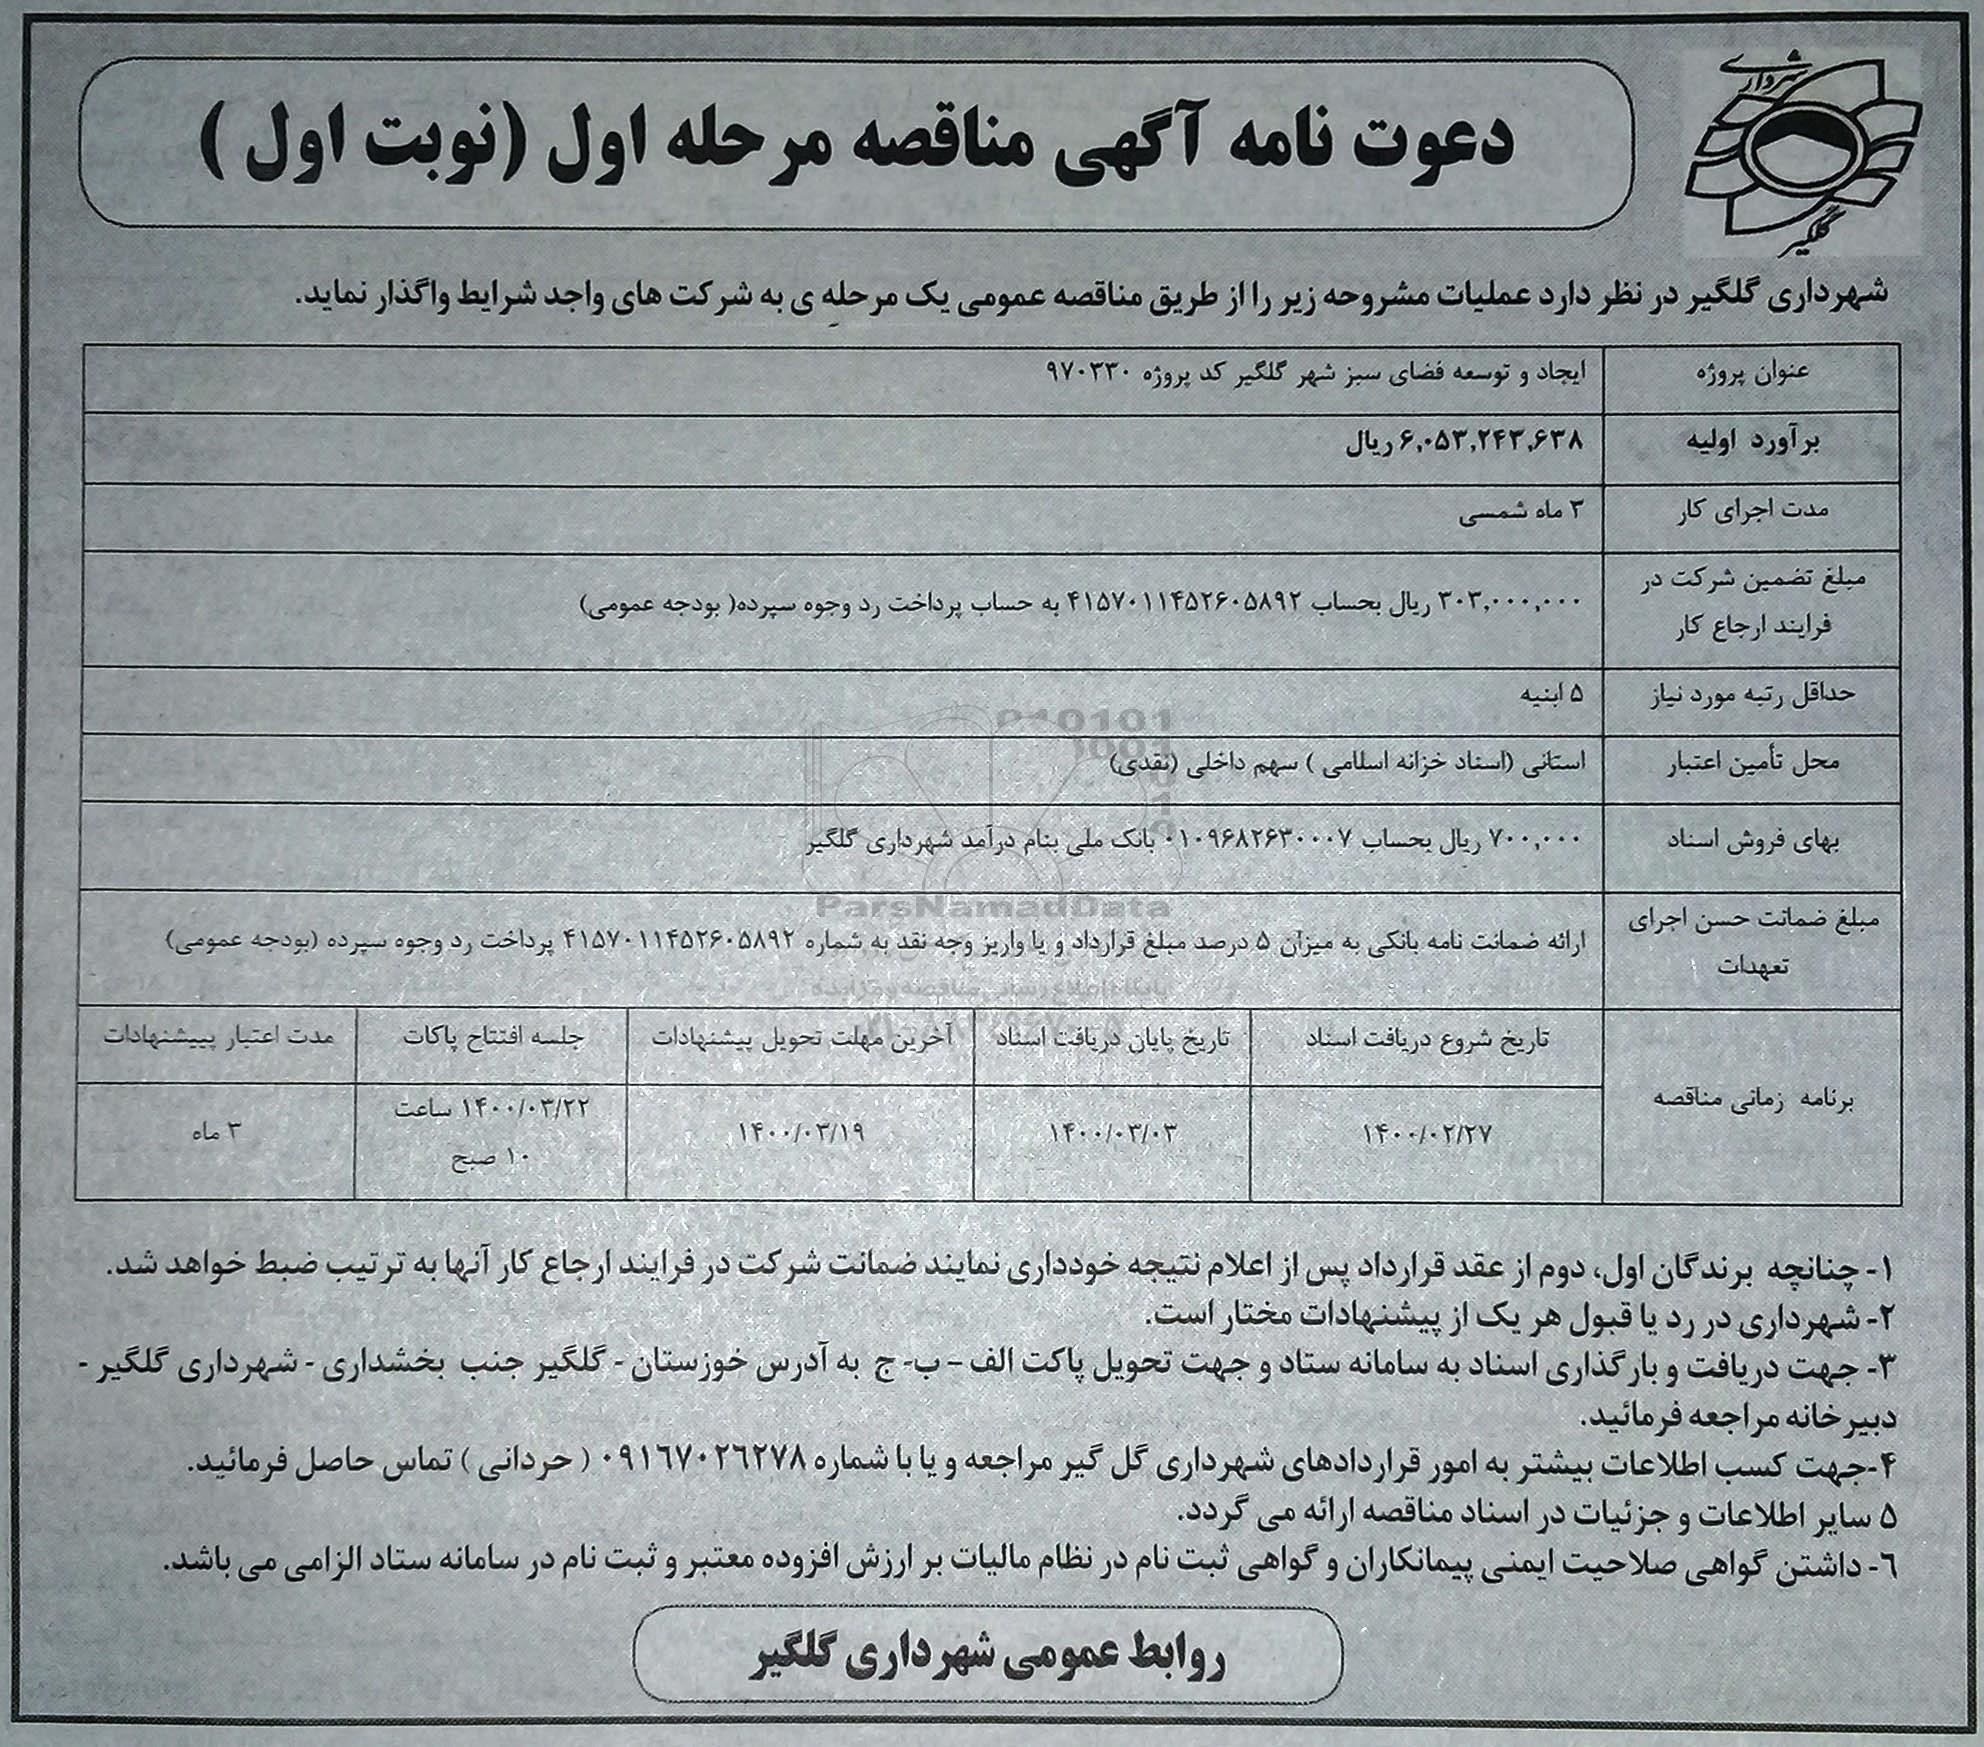 شهرداری
گلگیر
دعوت نامه آگهی مناقصه مرحله اول (نوبت اول )
شهرداری گلگیر در نظر دارد عملیات مشروحه زیر را از طریق مناقصه عمومی یک مرحله ی به شرکت های واجد شرایط واگذار نماید.
عنوان پروژه
ایجاد و توسعه فضای سبز شهر گلگیر کد پروژه ۹۷۰۳۳۰
برآورد اولیه
۶,۰۵۳,۲۴۳,۶۳۸ ریال
مدت اجرای کار
۳ ماه شمسی
مبلغ تضمین شرکت در
فرایند ارجاع کار
۳۰۳,۰۰۰,۰۰۰ ریال بحساب ۴۱۵۷۰۱۱۴۵۲۶۰۵۸۹۲ به حساب پرداخت رد وجوه سپرده( بودجه عمومی)
حداقل رتبه مورد نیاز
۵ ابنیه
محل تأمین اعتبار
استانی (اسناد خزانه اسلامی ) سهم داخلی (نقدی)
بهای فروش اسناد
۷۰۰,۰۰۰ ریال بحساب ۰۱۰۹۶۸۲۶۳۰۰۰۷ بانک ملی بنام درآمد شهرداری گلگیر
ParsNamadData
مبلغ ضمانت حسن اجرای
تعهدات
ارائه ضمانت نامه بانکی به میزان ۵ درصد مبلغ قرارداد و یا واریز وجه نقد به شماره ۴۱۵۷۰۱۱۴۵۲۶۰۵۸۹۲ پرداخت رد وجوه سپرده (بودجه عمومی)
پایگاه اطلاع رسانی مناقصه و مزایده
برنامه زمانی مناقصه
تاریخ شروع دریافت اسناد
تاریخ پایان دریافت اسناد
آخرین مهلت تحویل پیشنهادات
جلسه افتتاح پاکات
مدت اعتبار پیپشنهادات
۱۴۰۰/۰۲/۲۷
۱۴۰۰/۰۳/۰۳
۱۴۰۰/۰۳/۱۹
۱۴۰۰/۰۳/۲۲ ساعت
۱۰ صبح
۳ ماه
۱- چنانچه برندگان اول، دوم از عقد قرارداد پس از اعلام نتیجه خودداری نمایند ضمانت شرکت در فرایند ارجاع کار آنها به ترتیب ضبط خواهد شد.
۲- شهرداری در رد یا قبول هر یک از پیشنهادات مختار است.
۳- جهت دریافت و بارگذاری اسناد به سامانه ستاد و جهت تحویل پاکت الف – ب- ج به آدرس خوزستان - گلگیر جنب بخشداری - شهرداری گلگیر -
دبیرخانه مراجعه فرمائید.
۴-جهت کسب اطلاعات بیشتر به امور قراردادهای شهرداری گل گیر مراجعه و یا با شماره ۰۹۱۶۷۰۲۶۲۷۸ ( حردانی ) تماس حاصل فرمائید.
۵ سایر اطلاعات و جزئیات در اسناد مناقصه ارائه می گردد.
۶- داشتن گواهی صلاحیت ایمنی پیمانکاران و گواهی ثبت نام در نظام مالیات بر ارزش افزوده معتبر و ثبت نام در سامانه ستاد الزامی می باشد.
روابط عمومی شهرداری گلگیر